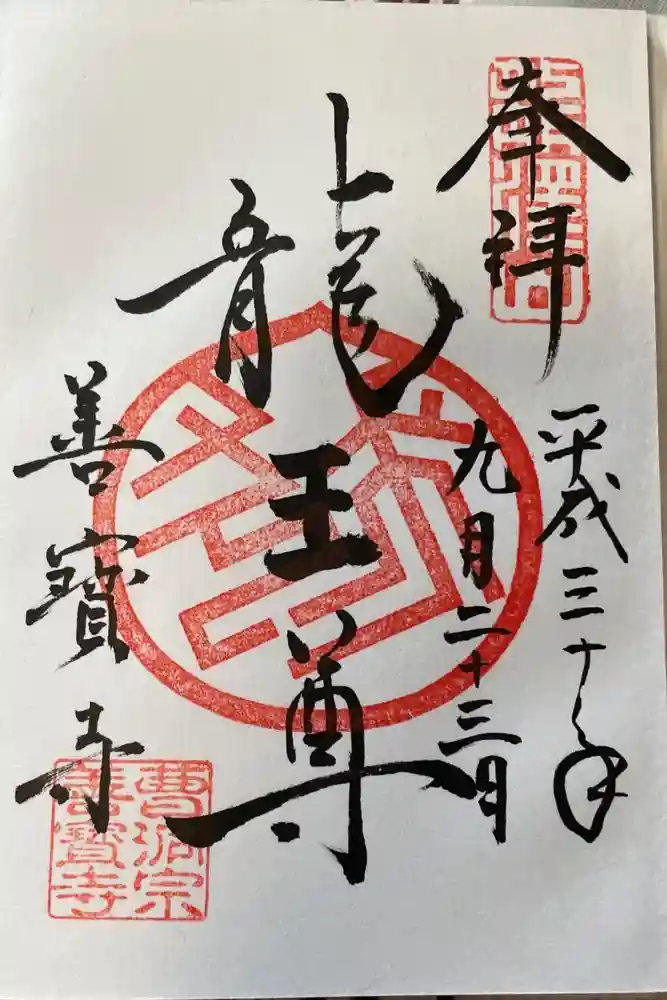 奉拝
平成三十年
九月二十三日
龍王尊
善寶寺
曹洞宗
善寶寺